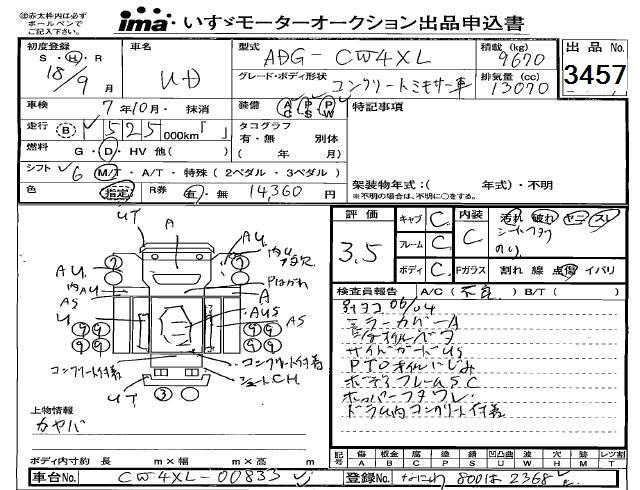 ㊟赤太枠内は必ず
ボールペンで
ご記入下さい。
ima いすゞモーターオークション出品申込書
初度登録 S・H・R 18/9 月
車名 UD
型式 ADG-CW4XL
積載(kg) 9670
出品No. 3457
グレード・ボディ形状 コンクリートミキサー車
排気量(cc) 13070
車検 7年10月・抹消
装備 AC PS PW
特記事項
走行 B 525 000km「 」
タコグラフ 有・無 別体
( 年 月)
燃料 G・D・HV 他( )
シフト 6 M/T・A/T・特殊(2ペダル・3ペダル)
架装物年式:( 年式)・不明
※不明の場合は、不明に○をする。
色 指定 R券 有・無 14,360 円
評価 3.5
キャブ C
フレーム C
ボディ C
内装 C
汚れ 破れ ヤニ スレ
シートフタワ
のり
Fガラス 割れ 線 点傷 イバリ
検査員報告 A/C(不良) B/T( )
外ヨコ 06/04
ミラーカバーA
サイドガードUS
PTOオイルにじみ
ボデーフレームSC
ホッパーフタワレ
ドラム内コンクリート付着
UT
A
AU
内U
Pはがれ
AU
内AU
AS
A
U
AUS
AS
コンクリート付着
コンクリート付着
シュートCH
UT
③
上物情報
カヤバ
ボディ内寸約 長 m×幅 m×高 m
記号 傷A 板金B 腐C 塗P 錆S 凹凸曲U 波W 穴H 跡M レツ割T
車台No. CW4XL-00833
登録No. なにわ 800は2368